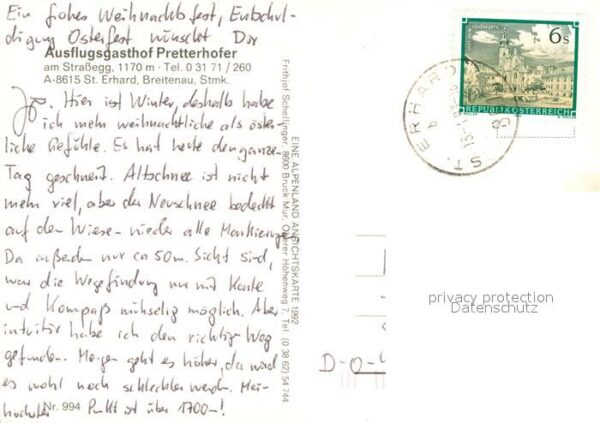 Ein frohes Weihnachtsfest, Entschul-
digung Osterfest wünscht Dir
Ausflugsgasthof Pretterhofer
am Straßegg, 1170 m · Tel. 0 31 71 / 260
A-8615 St. Erhard, Breitenau, Stmk.
Jo. Hier ist Winter, deshalb habe
ich mehr weihnachtliche als öster-
liche Gefühle. Es hat heute den ganzen
Tag geschneit. Altschnee ist nicht
mehr viel, aber der Neuschnee bedeckt
auf den Wiesen wieder alle Markierungen
Da außerdem nur ca 50m. Sicht sind,
war die Wegefindung nur mit Karte
und Kompaß mühselig möglich. Aber
intuitiv habe ich den richtigen Weg
gefunden. Morgen geht es höher, da wird
es wohl noch schlechter werden. Mein
höchster Punkt ist über 1700-!
Nr. 994
EINE ALPENLAND ANSICHTSKARTE 1992
Frithjof Schellinger, 8600 Bruck/Mur, Oberer Höhenweg 7, Tel. (0 38 62) 54 744
6 S
REPUBLIK ÖSTERREICH
ST. ERHARD
privacy protection
Datenschutz
D-O-